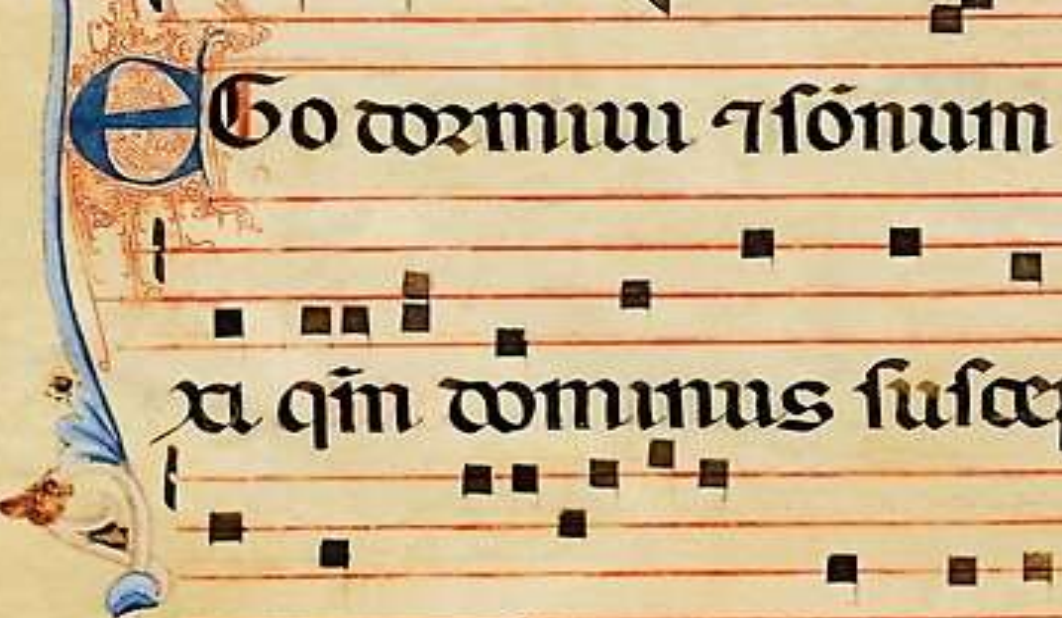 EGo dormiui ⁊ sōnum
xi qm̄ dominus suscep